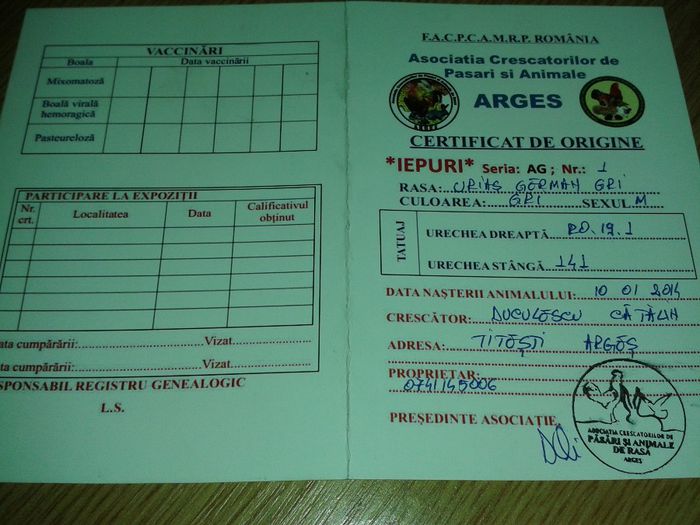 VACCINĂRI
Boala
Data vaccinării
Mixomatoză
Boală virală
hemoragică
Pasteureloză
PARTICIPARE LA EXPOZIŢII
Nr.
crt.
Localitatea
Data
Calificativul
obţinut
ata cumpărării:
Vizat
ta cumpărării:
Vizat
SPONSABIL REGISTRU GENEALOGIC
L.S.
F.A.C.P.C.A.M.R.P. ROMÂNIA
Asociatia Crescatorilor de
Pasari si Animale
ARGES
CERTIFICAT DE ORIGINE
*IEPURI* Seria: AG ; Nr.: 1
RASA: URIAŞ GERMAN GRI
CULOAREA: GRI SEXUL M
TATUAJ
URECHEA DREAPTĂ RO.19.1
URECHEA STÂNGĂ 141
DATA NAŞTERII ANIMALULUI: 10 01 2014
CRESCĂTOR: DUCULESCU CĂTĂLIN
ADRESA: TITEŞTI ARGEŞ
PROPRIETAR:
0741145006
PREŞEDINTE ASOCIAŢIE
ASOCIATIA CRESCATORILOR DE
PĂSĂRI SI ANIMALE
DE RASĂ
ARGES